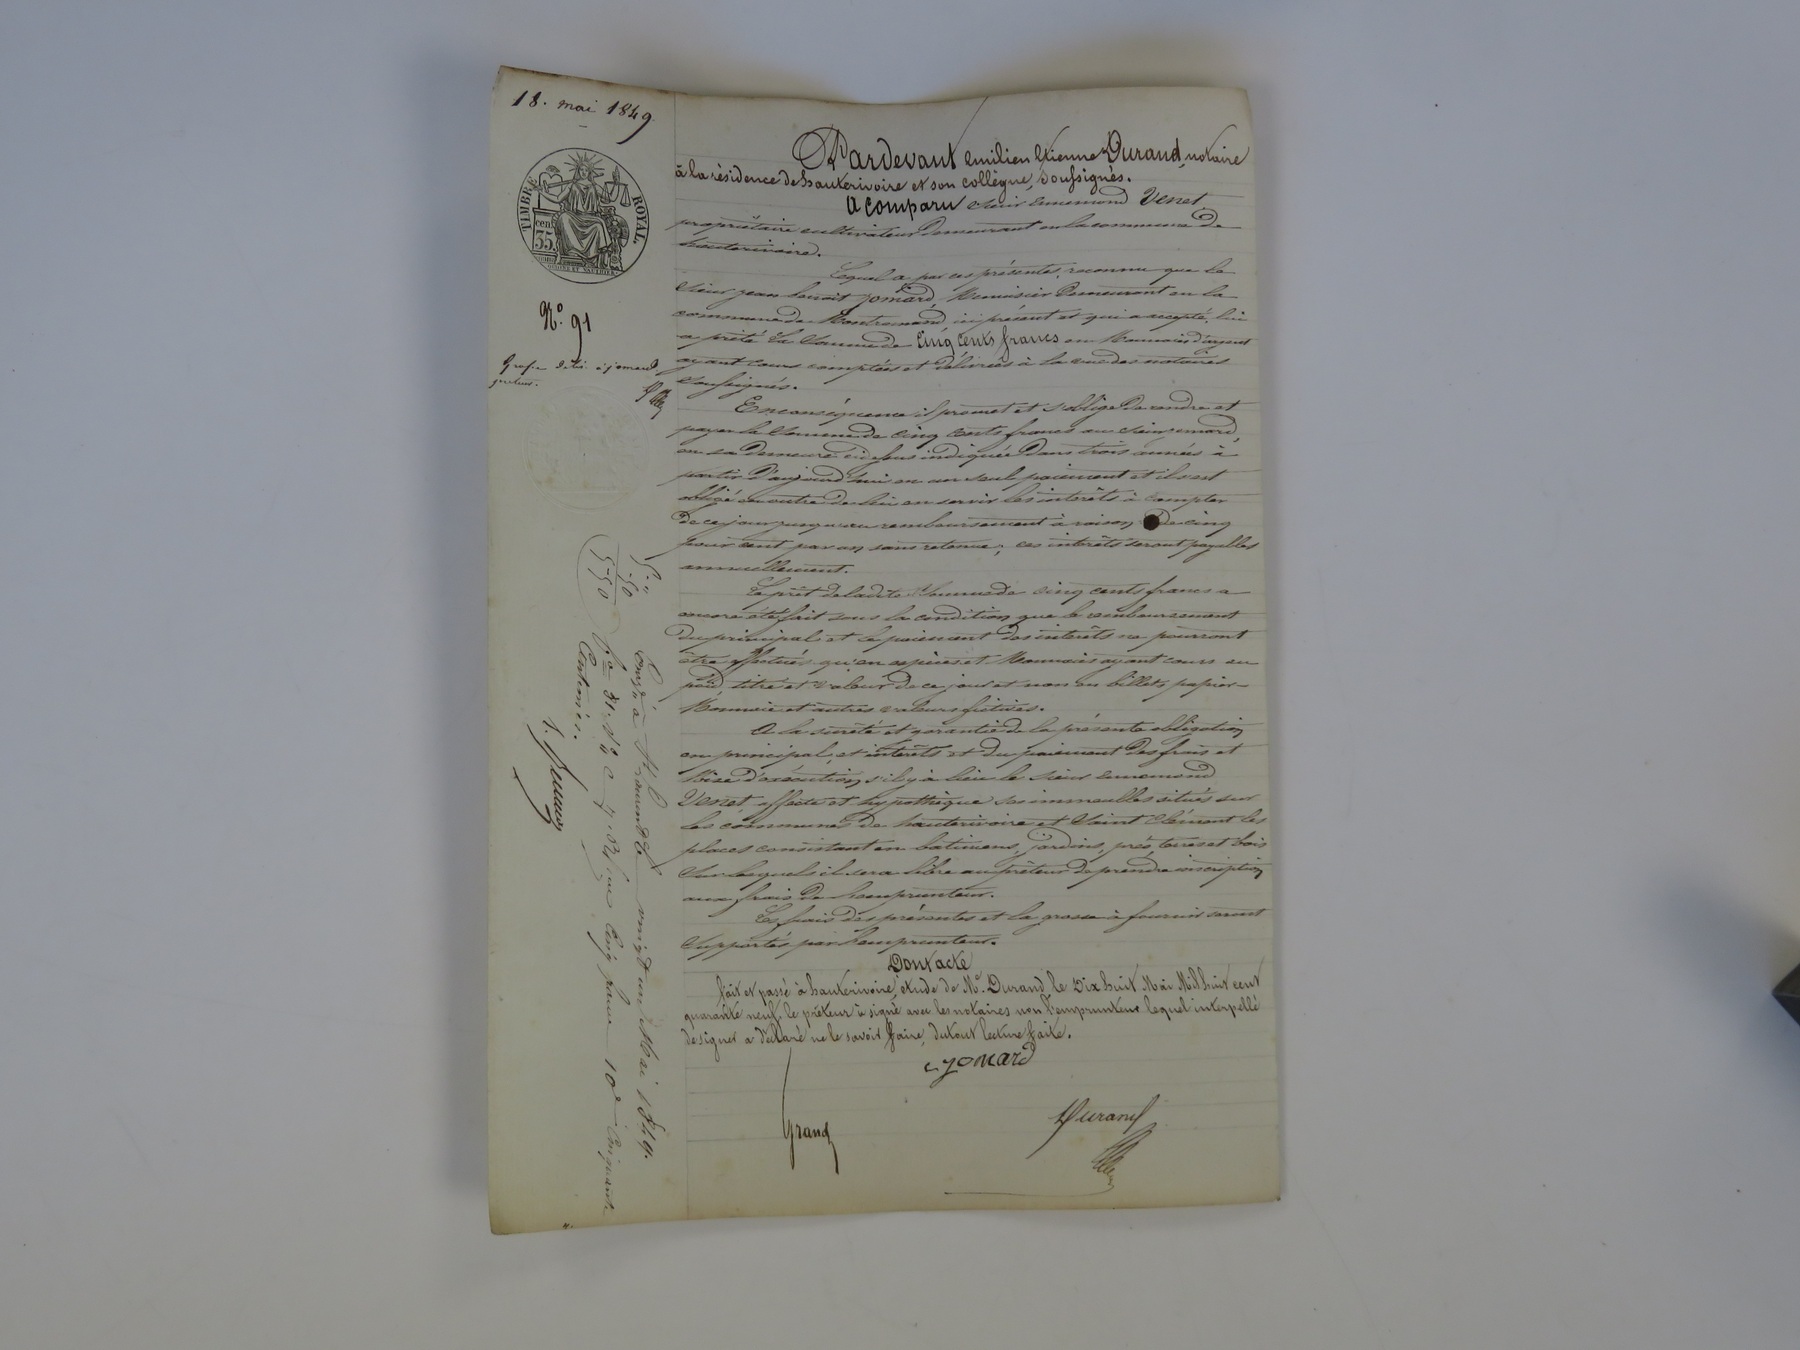 18. mai 1849
TIMBRE ROYAL
cen.
35.
N.o 91
Grosse délié à jomard
prêteur.
Pardevant émilien Etienne Durand, notaire
à la résidence de hauterivoire et son collègue, soussignés.
A comparu sieur ennemond Venet
propriétaire cultivateur demeurant en la commune de
hauterivoire.
Lequel a par ces présentes, reconnu que le
sieur jean benoit jomard, Menuisier demeurant en la
commune de Montromand ici présent et qui a accepté, lui
a prêté la somme de Cinq cents francs en Monnaies d'argent
ayant cours comptées et délivrées à la vue des notaires
soussignés.
En conséquence il promet et s'oblige de rendre et
payer la somme de cinq cents francs au sieur jomard
en sa demeure ci dessus indiquée dans trois années à
partir d'aujourd'hui en un seul paiement et il s'est
obligé en outre de lui en servir les intérêts à compter
de ce jour jusqu'au remboursement à raison de cinq
pour cent par an sans retenue; ces intérêts seront payables
annuellement.
Le prêt de ladite somme de cinq cents francs a
encore été fait sous la condition que le remboursement
du principal et le paiement des intérêts ne pourront
être effectués qu'en espèces et Monnaies ayant cours au
poid, titre et valeur de ce jour et non en billets, papier-
Monnaie et autres valeurs fictives.
A la sureté et garantie de la présente obligation
en principal, et intérêts et du paiement des frais et
Mise d'exécution s'il y a lieu le sieur ennemond
Venet affecte et hypothèque ses immeubles situés sur
les communes de hauterivoire et Saint Clément les
places consistant en bâtimens, jardins, prés, terres et bois
sur lesquels il sera libre au prêteur de prendre inscription
aux frais de l'emprunteur.
Les frais des présentes et la grosse à fournir seront
supportés par l'emprunteur.
Dont acte
fait et passé à hauterivoire, étude de M.e Durand, le dix huit Mai Mil huit cent
quarante neuf. le prêteur a signé avec les notaires non l'emprunteur lequel interpellé
de signer a déclaré ne le savoir faire, du tout lecture faite.
jomard
Grand
Durand
5. "
. 50
5-50
Enreg.é à St Laurent de vingt un Mai 1849.
f.o 81 R.o C. 7. Reçu Cinq francs 10e Cinquante
Centimes.